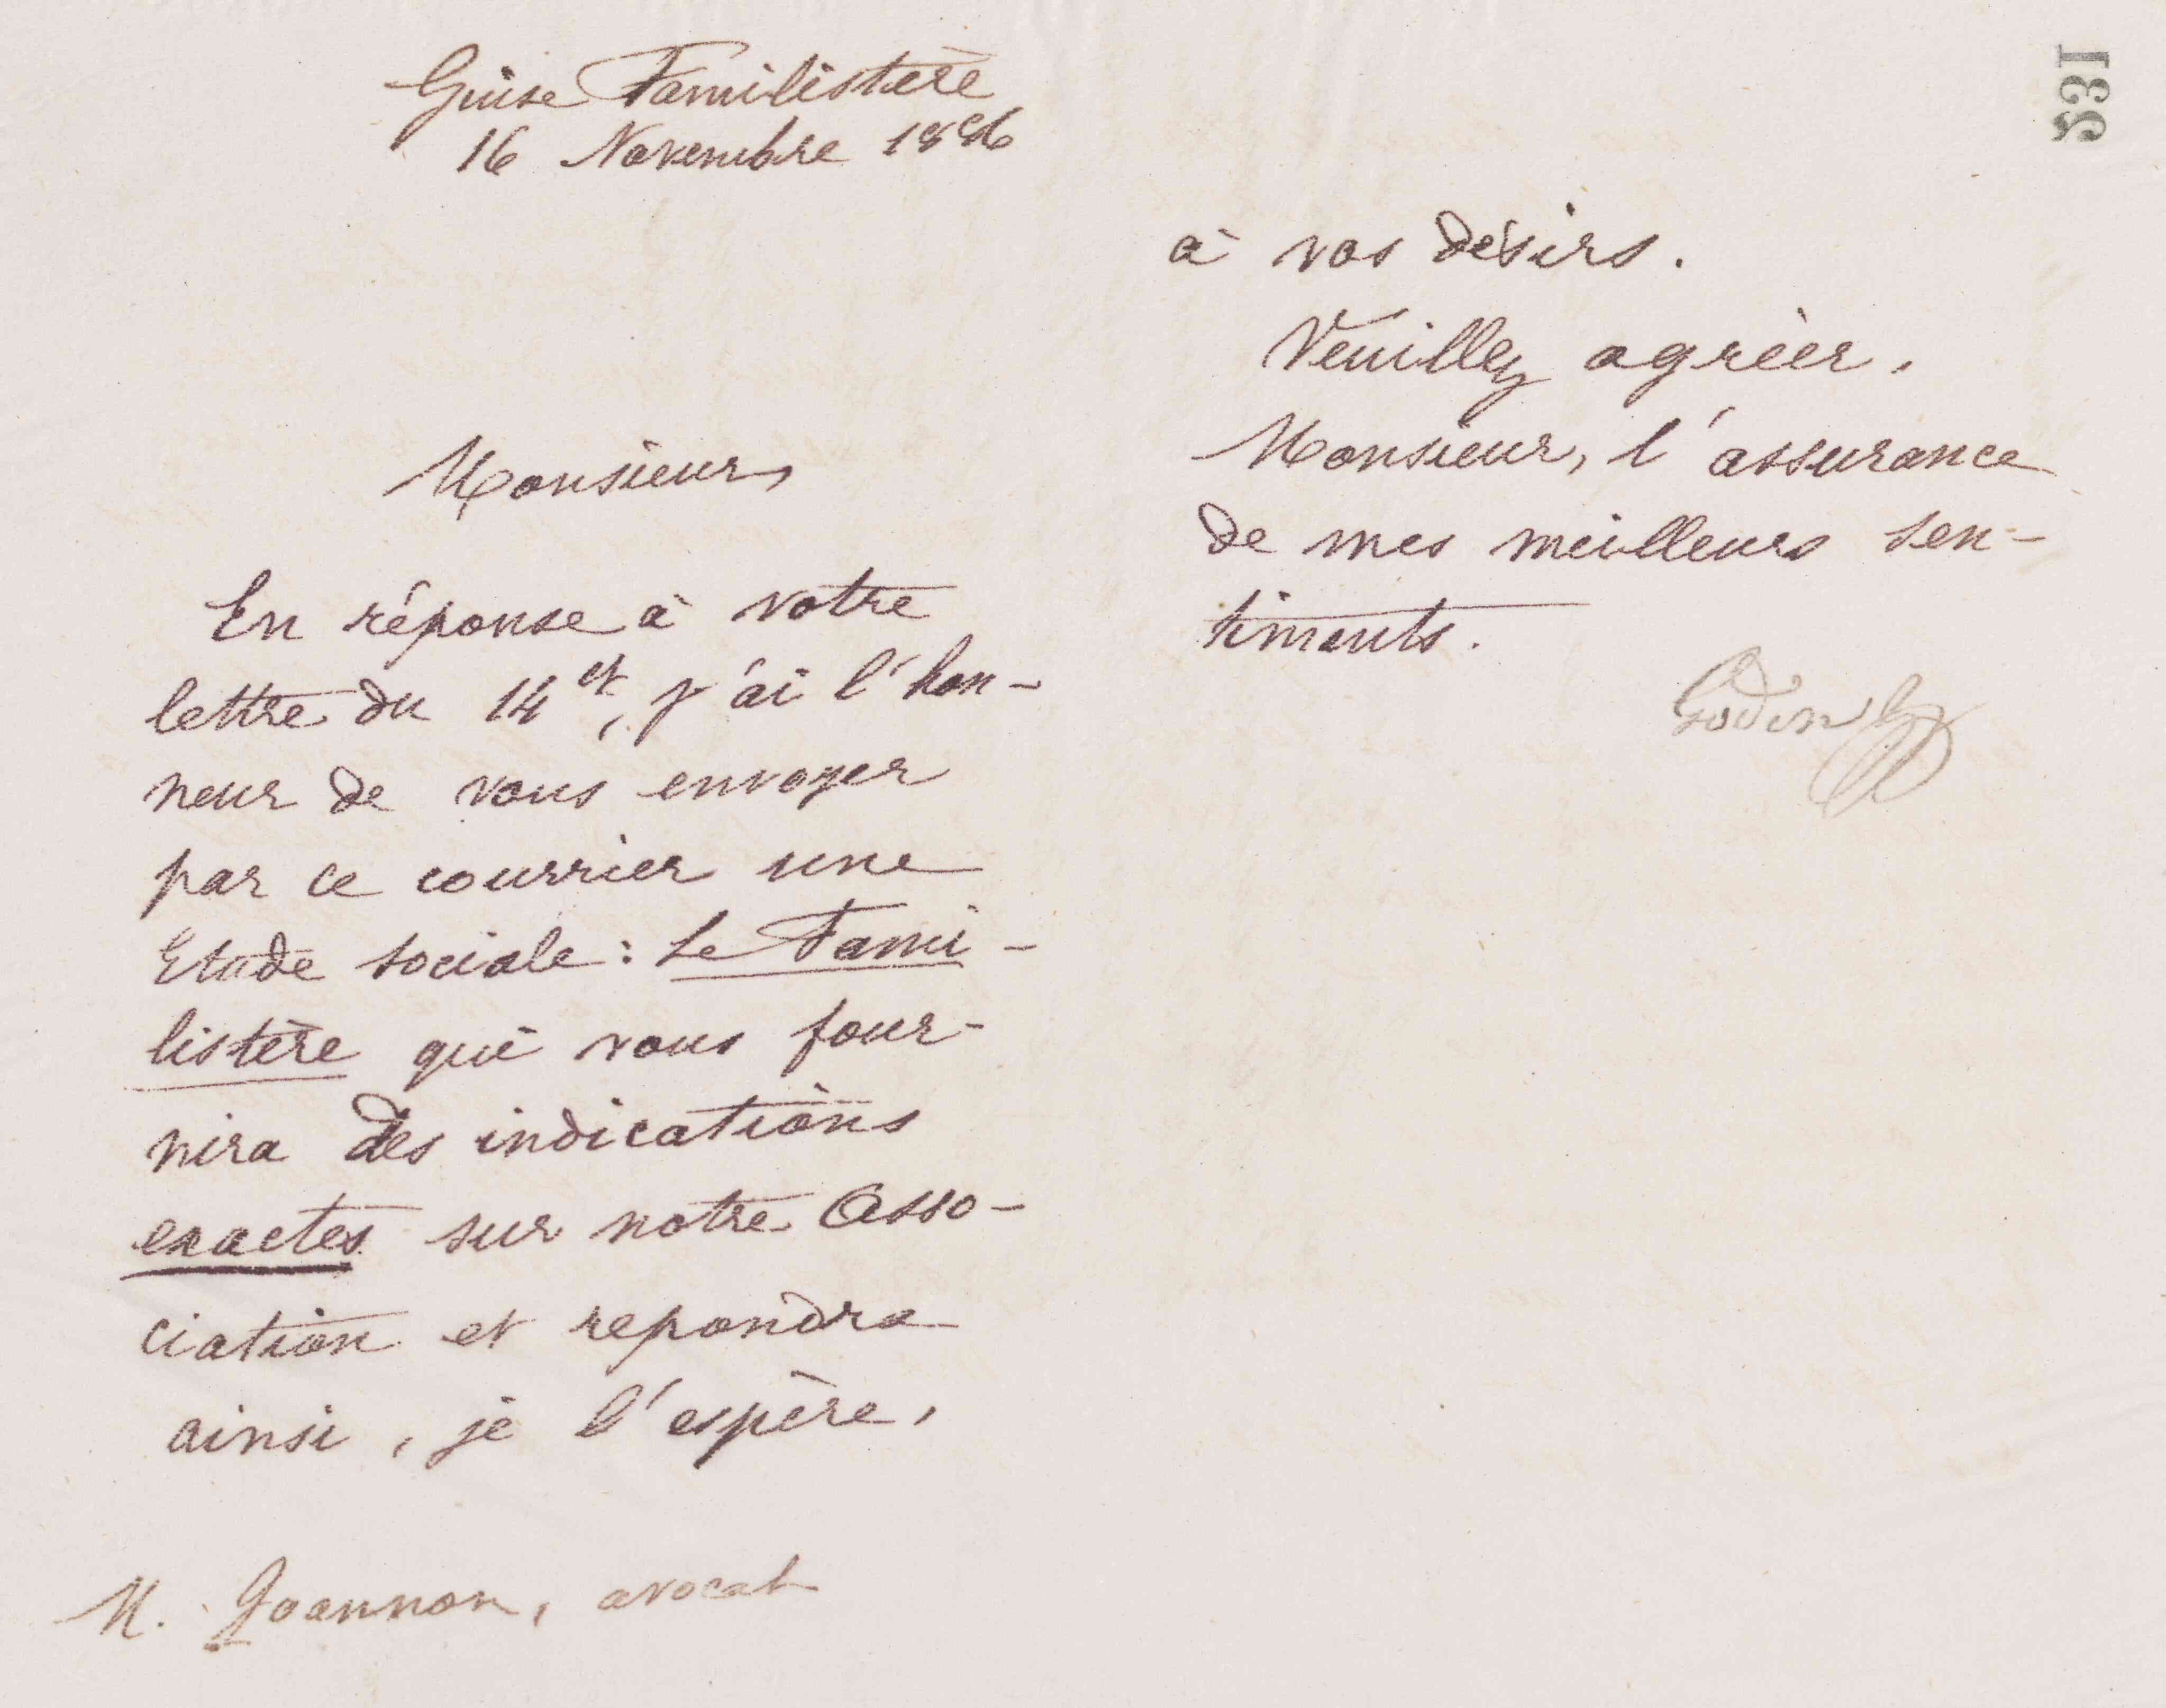 Guise Familistère
16 Novembre 1886
Monsieur,
En réponse à votre
lettre du 14 ct, j'ai l'hon-
neur de vous envoyer
par ce courrier une
Etude sociale : Le Fami-
listère qui vous four-
nira des indications
exactes sur notre Asso-
ciation et repondra
ainsi, je l'espère,
M. Joannon, avocat
531
à vos désirs.
Veuillez agréer,
Monsieur, l'assurance
de mes meilleurs sen-
timents.
Godin